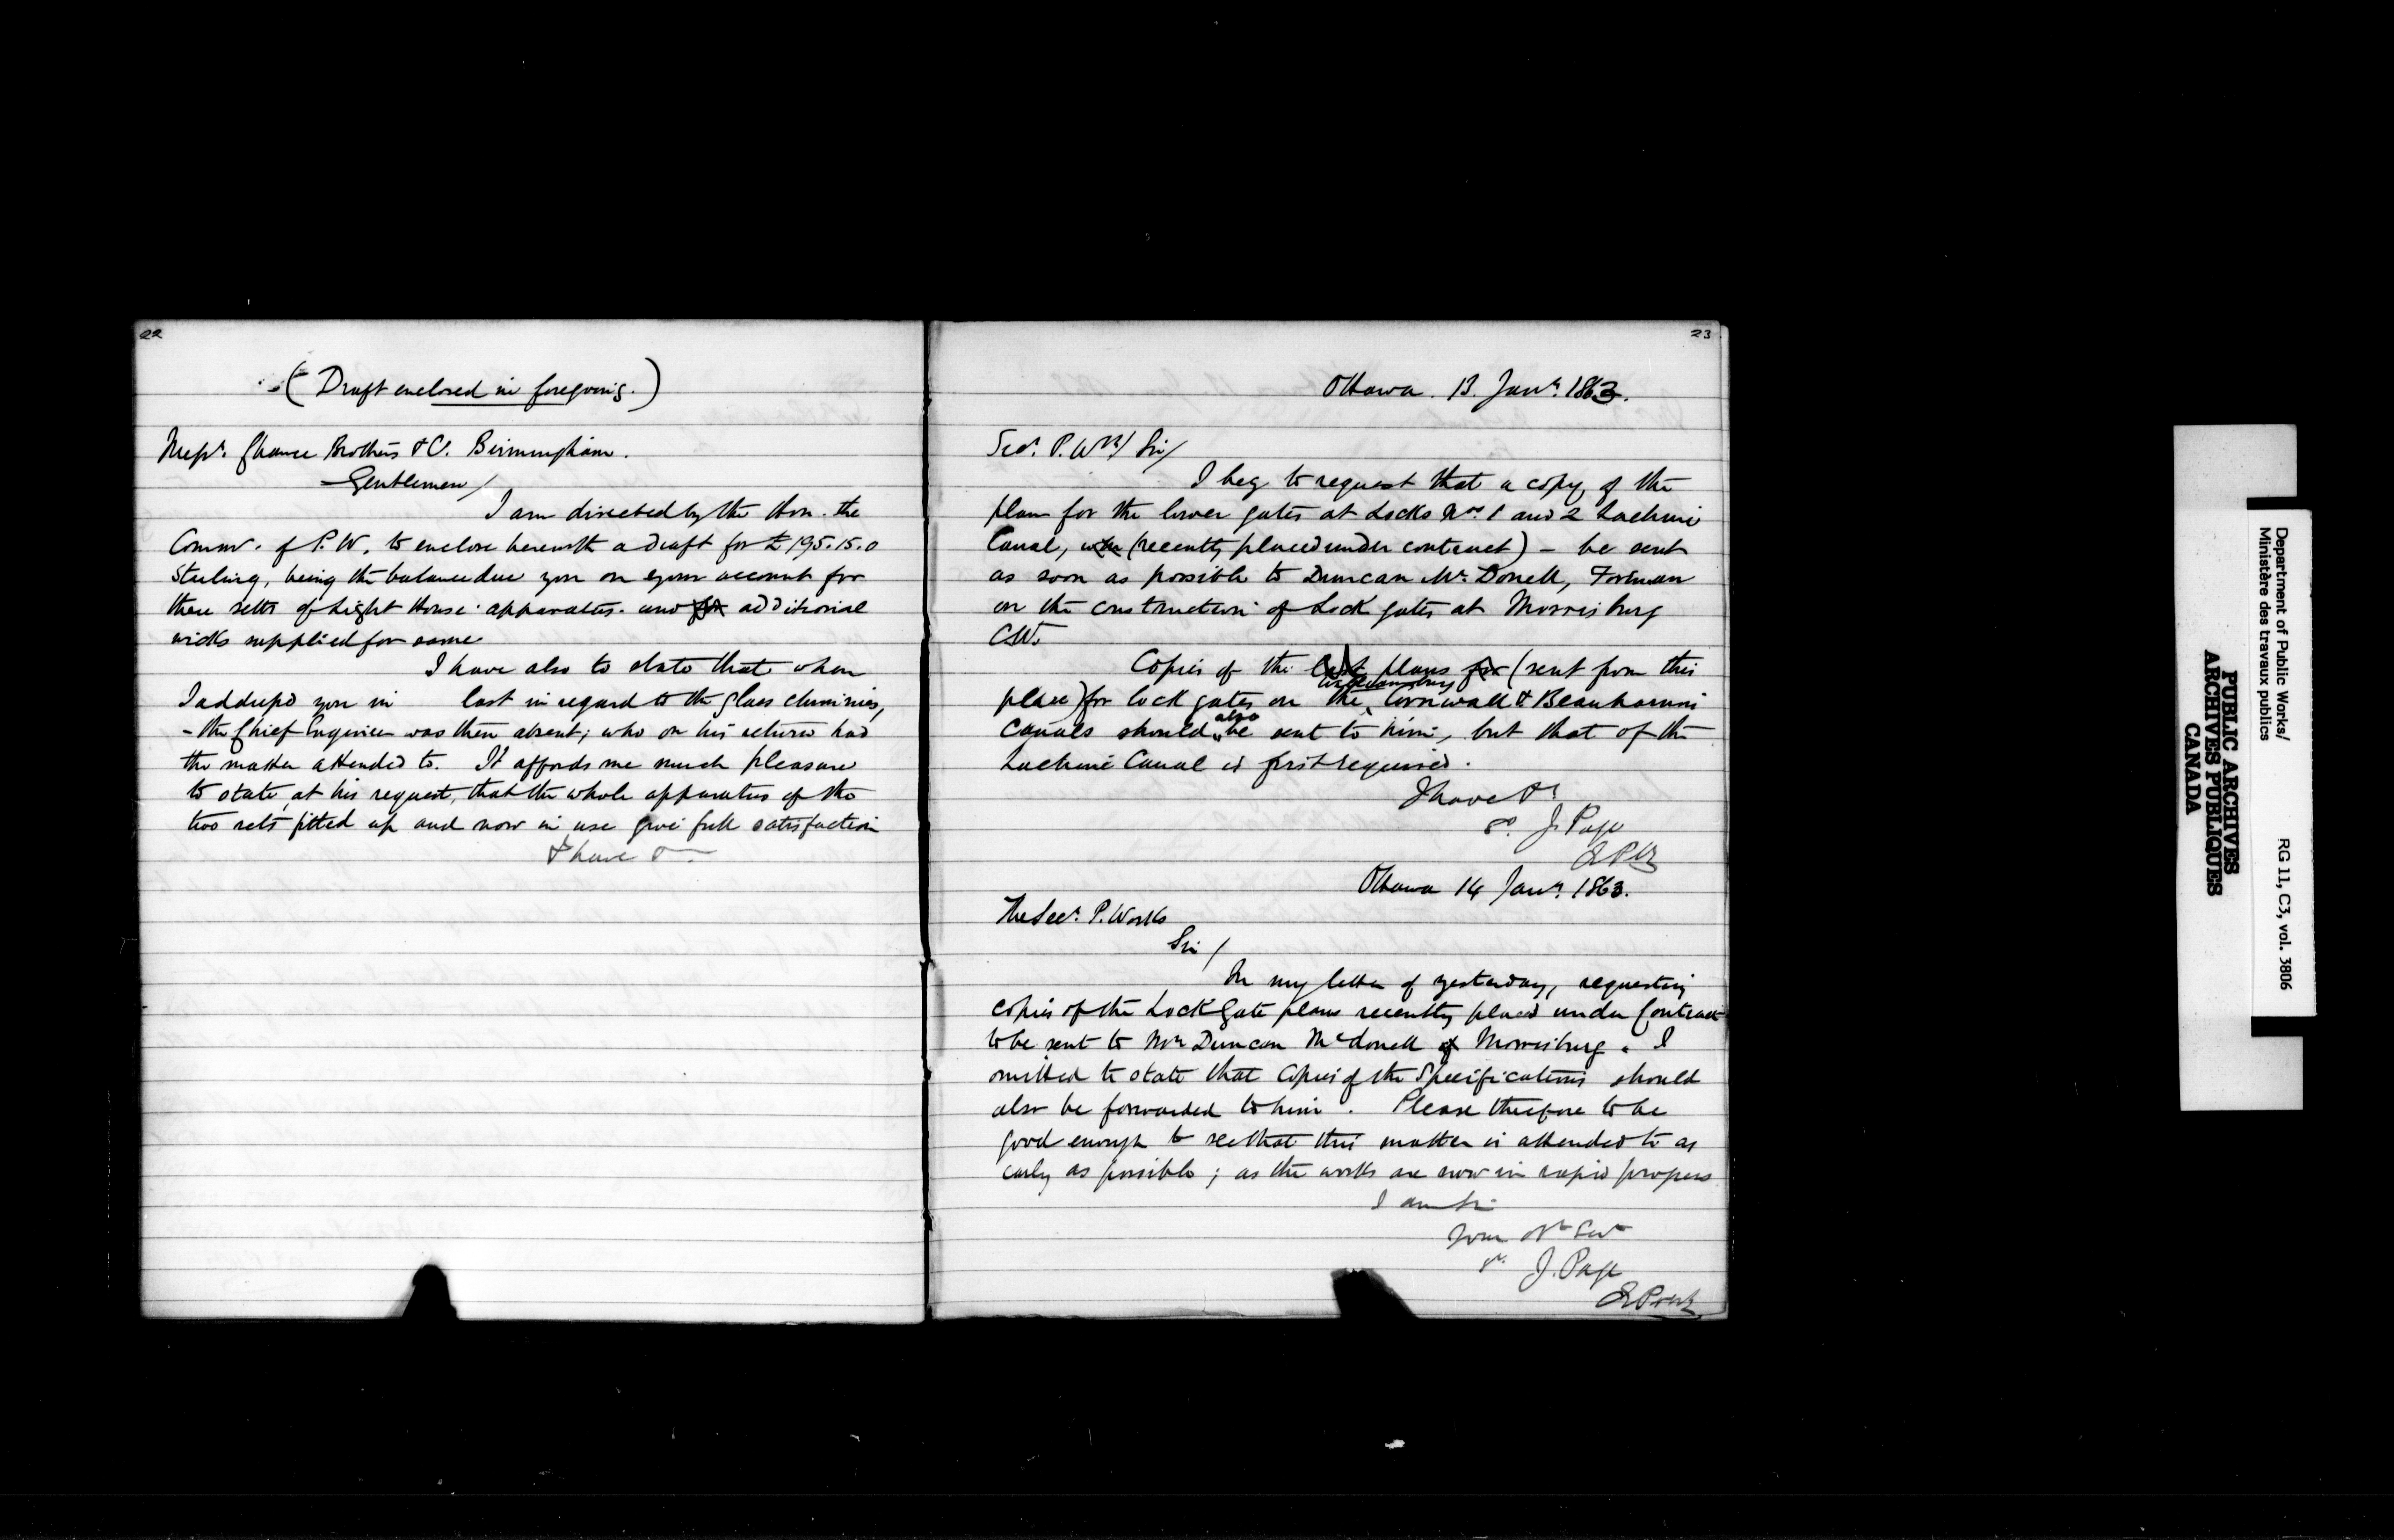 22
(Draft enclosed in foregoing.)
Messrs. Chance Brothers & Co. Birmingham.
Gentlemen/
I am directed by the Hon. the
Commr. of P.W. to enclose herewith a draft for £195.15.0
Sterling, being the balance due you on your account for
three setts of Light House apparatus and for additional
wicks supplied for same
I have also to state that when
I addressed you in last in regard to the glass chimnies,
- the Chief Engineer was then absent; who on his return had
the matter attended to. It affords me much pleasure
to state, at his request, that the whole apparatus of the
two sets fitted up and now in use give full satisfaction
I have &
23
Ottawa. 13. Jany. 1863.
Secy. P. Wks/ Sir/
I beg to request that a copy of the
plan for the lower gates at Locks Nos. 1 and 2 Lachine
Canal, (recently placed under contract) - be sent
as soon as possible to Duncan Mc. Donell, Foreman
on the construction of Lock gates at Morrisburg
C.W.
Copies of the plans for (sent from this
place) for lock gates on the Cornwall & Beauharnois
canals should also be sent to him, but that of the
Lachine Canal is first required.
I have &c
sd. J. Page
Ottawa 14 Jany. 1863.
The Secy. P. Works
Sir/
In my letter of yesterday, requesting
copies of the Lock Gate plans recently placed under Contract
to be sent to Mr Duncan McDonell of Morrisburg. I
omitted to state that Copies of the Specifications should
also be forwarded to him. Please therefore to be
good enough to see that this matter is attended to as
early as possible; as the works are now in rapid progress
I am Sir
Your Obt Servt
sd. J. Page
Department of Public Works/
Ministère des travaux publics
RG 11, C3, vol. 3806
PUBLIC ARCHIVES
ARCHIVES PUBLIQUES
CANADA